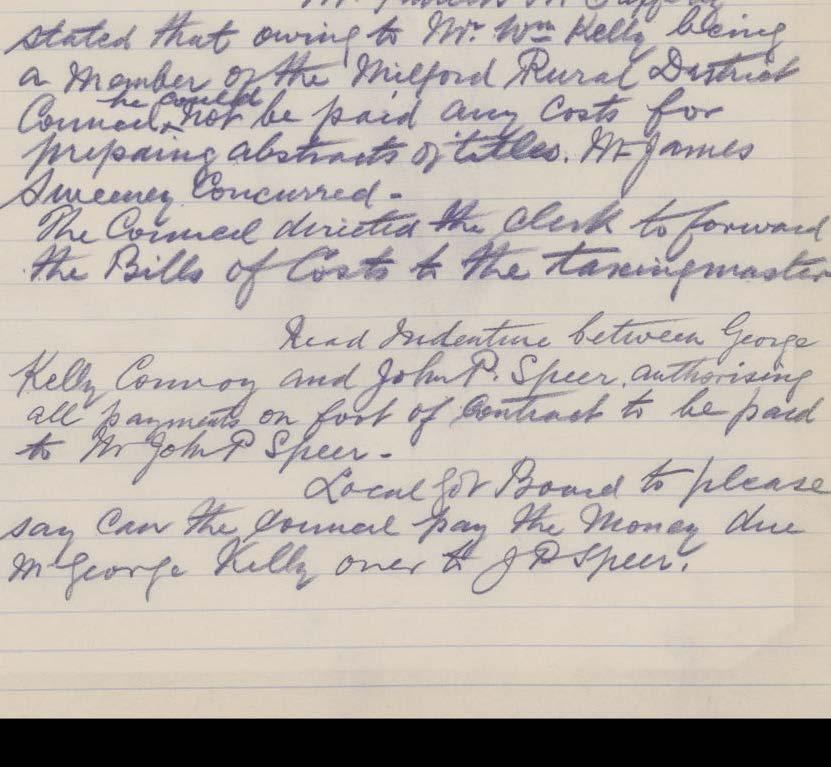 stated that owing to Mr. Wm Kelly being
a Member of the Milford Rural District
Council, he could not be paid any Costs for
prepaing abstracts of titles. Mr James
Sweeney Concurred -
The Council directed the clerk to forward
the Bills of Costs to the taxingmaster
Read Indenture between George
Kelly Convoy and John P. Speer, authorising
all payments on foot of Contract to be paid
to Mr John P Speer -
Local Govt Board to please
say can the Council pay the Money due
Mr George Kelly over to J P Speer.